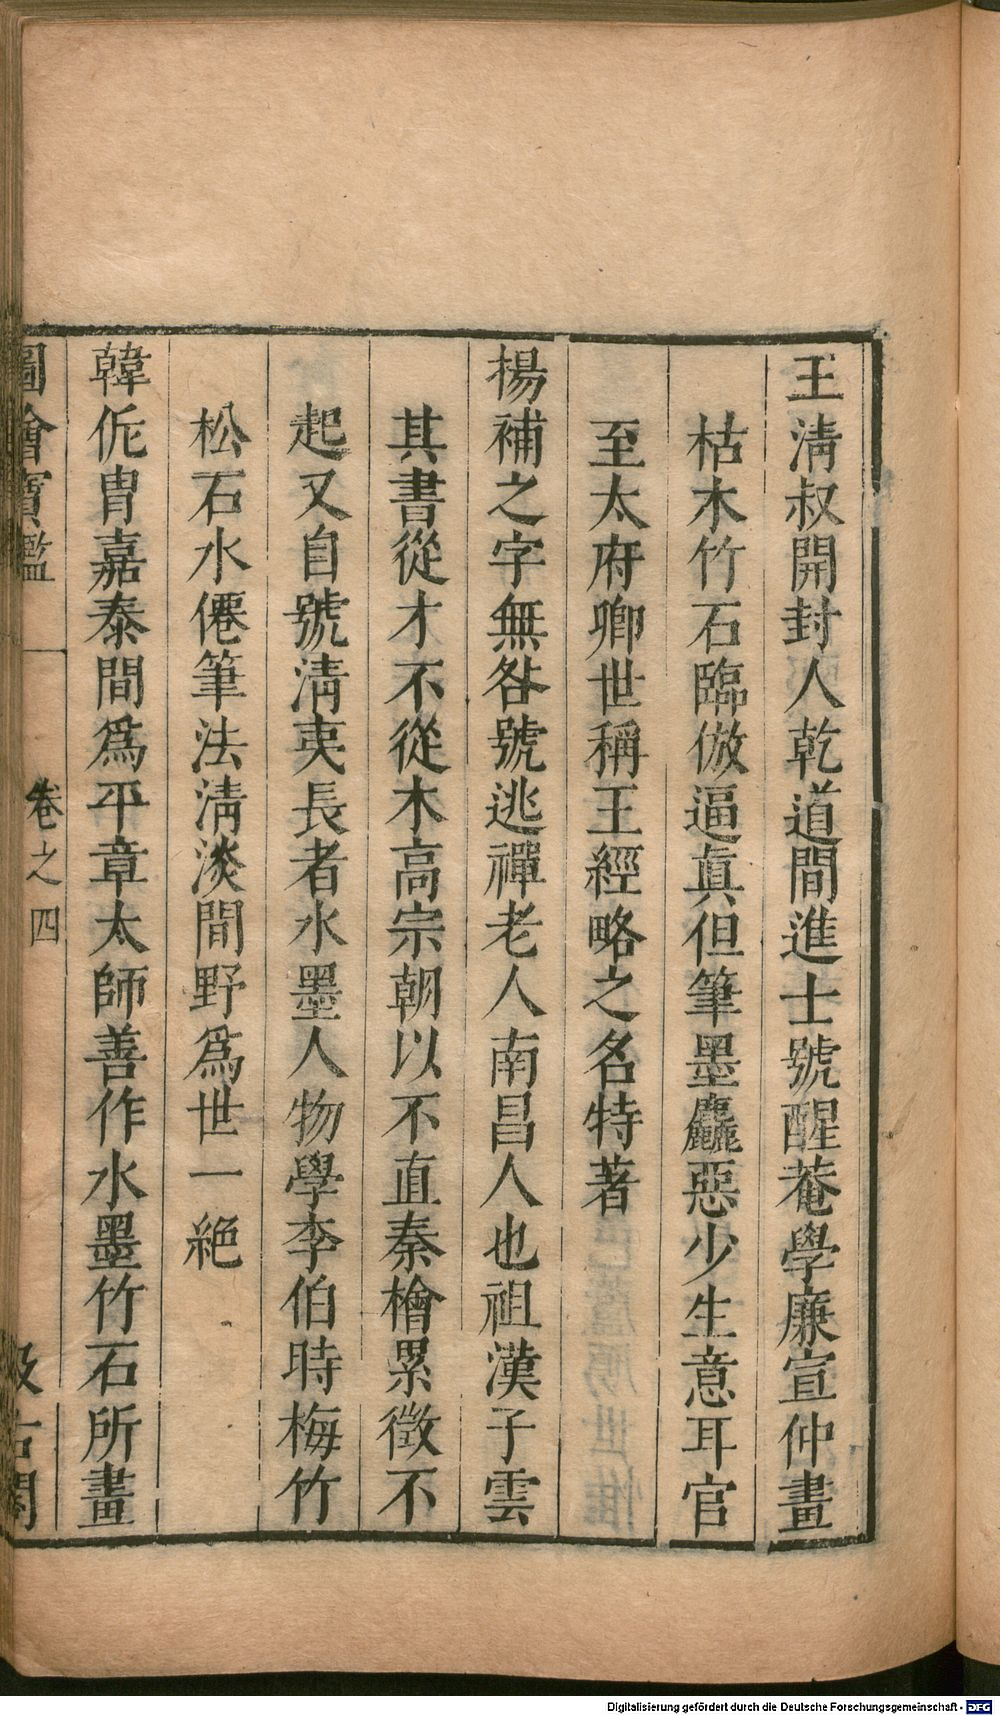 王清叔開封人乾道間進士號醒菴學廉宣仲畫
枯木竹石臨倣逼真但筆墨麤惡少生意耳官
至太府卿世稱王經略之名特著
揚補之字無咎號逃禪老人南昌人也祖漢子雲
其書從才不從木高宗朝以不直秦檜累徵不
起又自號清夷長者水墨人物學李伯時梅竹
松石水僊筆法清淡間野為世一絶
韓侂胄嘉泰間爲平章太師善作水墨竹石所畫
圖會寳鑑 卷之四 汲古閣
Digitalisierung gefördert durch die Deutsche Forschungsgemeinschaft - DFG